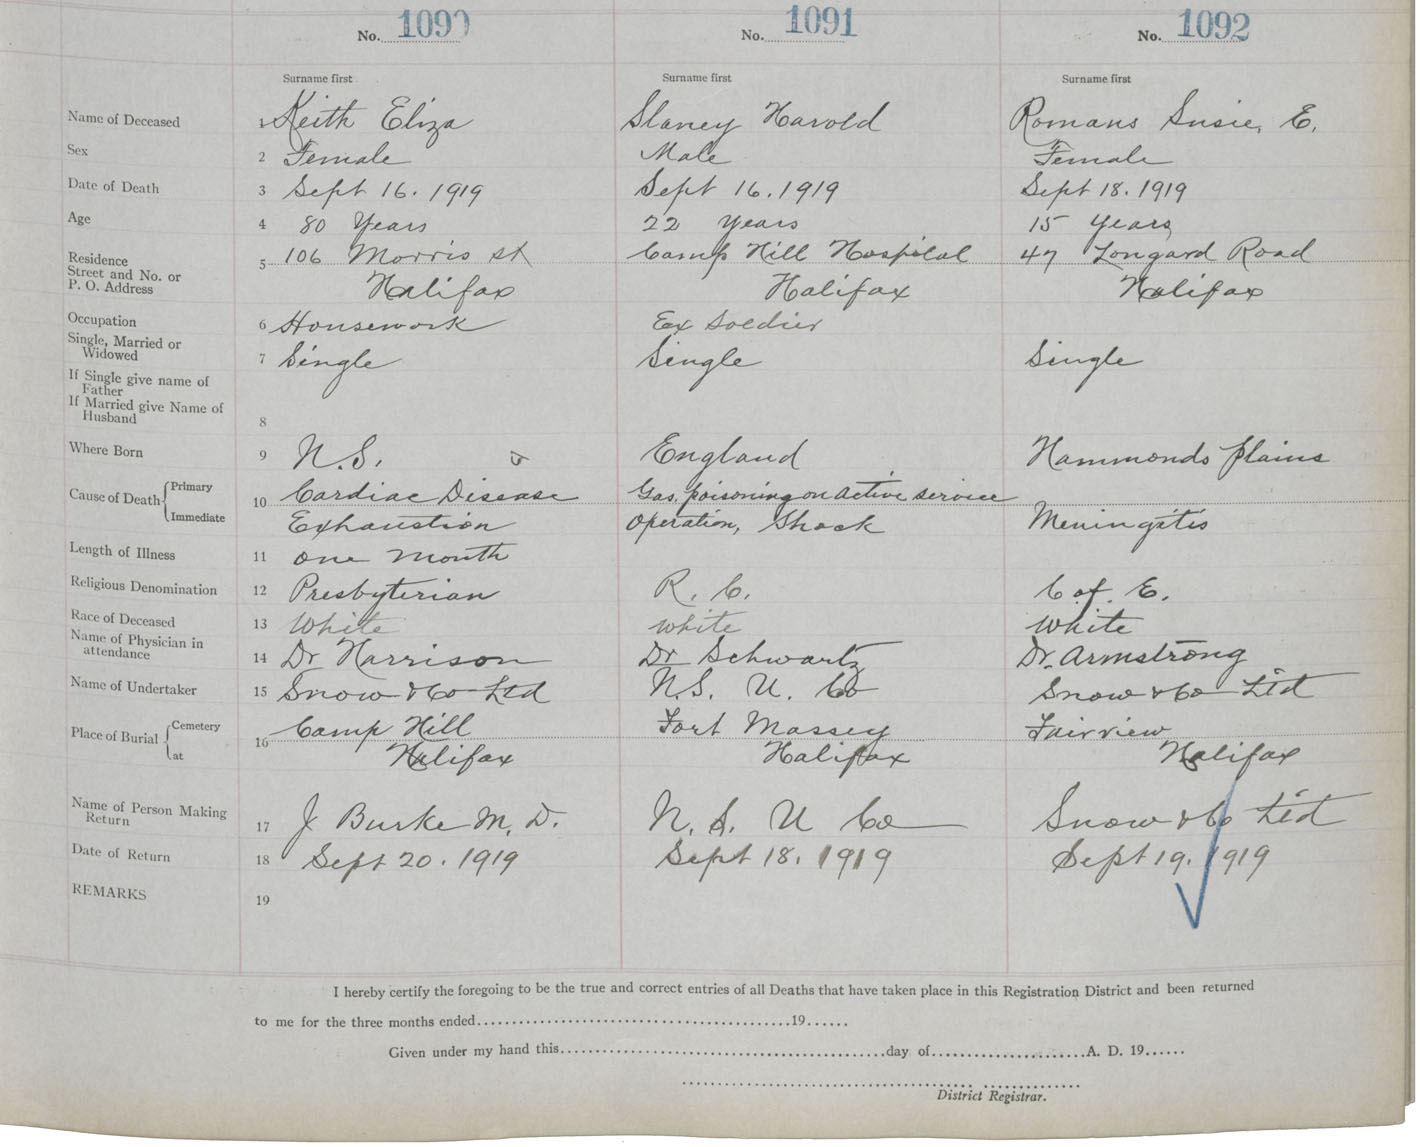 No. 1090 No. 1091 No. 1092
Surname first Surname first Surname first
Name of Deceased 1 Keith Eliza Slaney Harold Romans Susie, E.
Sex 2 Female Male Female
Date of Death 3 Sept 16. 1919 Sept 16. 1919 Sept 18. 1919
Age 4 80 Years 22 years 15 years
Residence
Street and No. or 5 106 Morris St Camp Hill Hospital 47 Longard Road
P. O. Address Halifax Halifax Halifax
Occupation 6 Housework Ex Soldier
Single, Married or
Widowed 7 Single Single Single
If Single give name of
Father
If Married give Name of
Husband 8
Where Born 9 N.S. England Hammonds plains
Cause of Death Primary 10 Cardiac Disease Gas poisoning on active service
Immediate Exhaustion operation, Shock Meningitis
Length of Illness 11 one month
Religious Denomination 12 Presbyterian R. C. C of. E.
Race of Deceased 13 White white white
Name of Physician in
attendance 14 Dr Harrison Dr Schwartz Dr. Armstrong
Name of Undertaker 15 Snow & Co Ltd N.S. U. Co Snow & Co Ltd
Place of Burial Cemetery 16 Camp Hill Fort Massey Fairview
at Halifax Halifax Halifax
Name of Person Making
Return 17 J Burke M, D. N. S. U Co Snow & Co Ltd
Date of Return 18 Sept 20. 1919 Sept 18. 1919 Sept 19. 1919
REMARKS 19
I hereby certify the foregoing to be the true and correct entries of all Deaths that have taken place in this Registration District and been returned
to me for the three months ended 19
Given under my hand this day of A. D. 19
District Registrar.